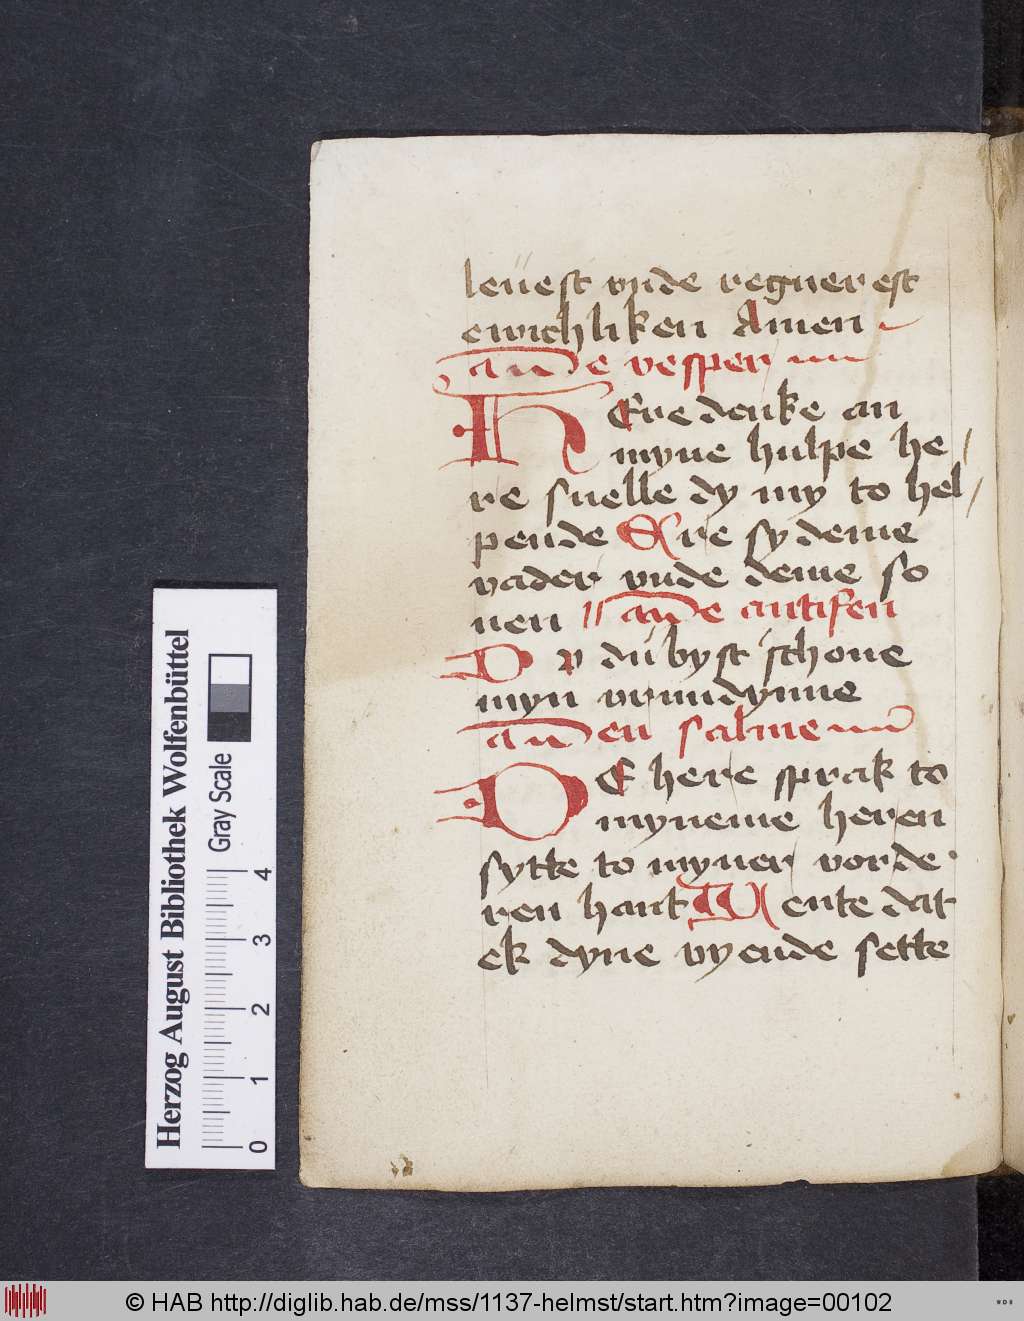 leuest vnde regnerest
ewichliken Amen
ane vesper
HEre denke an
myne hulpe he
re snelle dy my to hel
pende Ere sy deme
vader vnde deme so
nen ane antifen
Dv du byst schone
myn vrundynne
an en salme
DE here sprak to
myneme heren
sytte to myner vorde
ren hant Wente dat
ek dyne vyende sette
Herzog August Bibliothek Wolfenbüttel
Gray Scale
0 1 2 3 4
© HAB http://diglib.hab.de/mss/1137-helmst/start.htm?image=00102